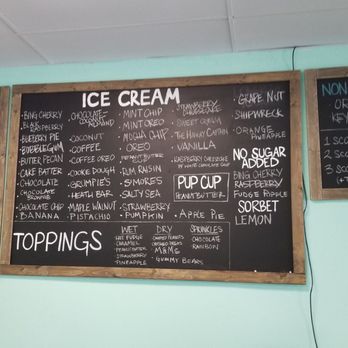 ICE CREAM
BING CHERRY
BLACK RASPBERRY
BLUEBERRY PIE
BUBBLEGUM
BUTTER PECAN
CAKE BATTER
CHOCOLATE
CHOCOLATE BROWNIE
CHOCOLATE CHIP
BANANA
CHOCOLATE
COCONUT
COFFEE
COFFEE OREO
COOKIE DOUGH
GRUMPIE'S
HEATH BAR
MAPLE WALNUT
PISTACHIO
MINT CHIP
MINT OREO
MOCHA CHIP
OREO
PEANUT BUTTER
RUM RAISIN
S'MORES
SALTY SEA
STRAWBERRY
PUMPKIN
STRAWBERRY CHEESECAKE
SWEET CREAM
THE HONEY CAPTAIN
VANILLA
RASPBERRY CHEESECAKE
W/ WHITE CHOCOLATE CHIP
PUP CUP
PEANUT BUTTER
APPLE PIE
GRAPE NUT
SHIPWRECK
ORANGE PINEAPPLE
NO SUGAR
ADDED
BING CHERRY
RASPBERRY
FUDGE RIPPLE
SORBET
LEMON
TOPPINGS
WET
HOT FUDGE
CARAMEL
PEANUT BUTTER
STRAWBERRY
PINEAPPLE
DRY
M&MS
GUMMY BEARS
SPRINKLES
CHOCOLATE
RAINBOW
NON
1 SCO
2 SCO
3 SCO